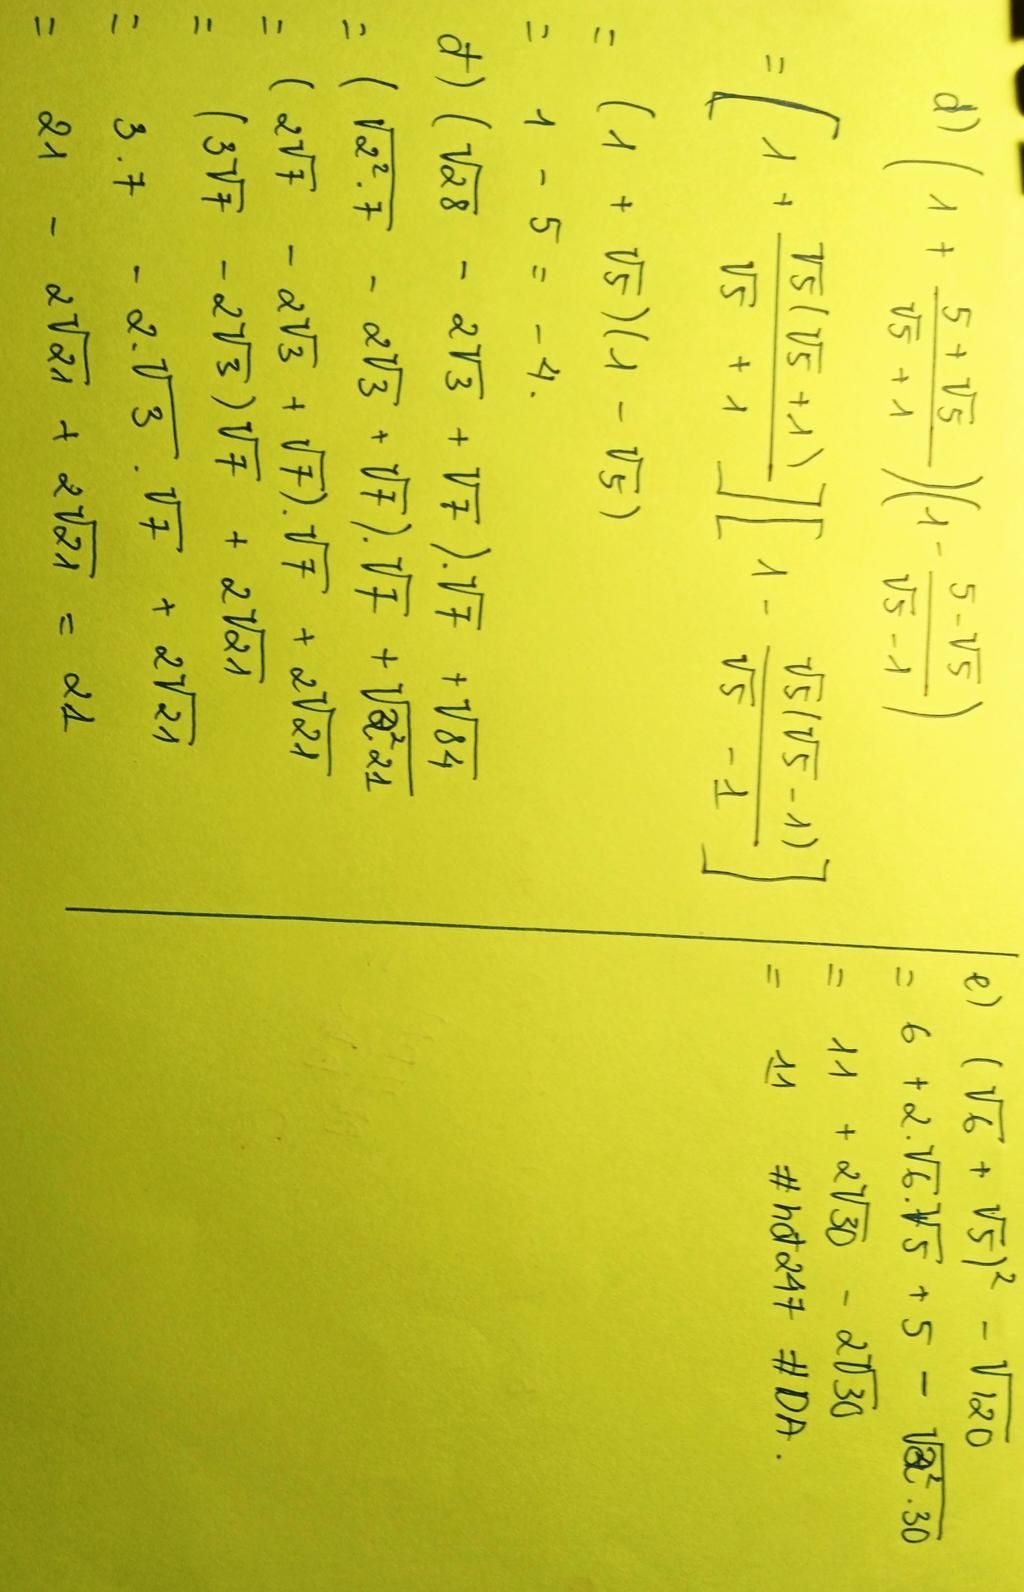 d) (1 + \frac{5+√5}{√5+1})(1 - \frac{5-√5}{√5-1})
= [1 + \frac{√5(√5+1)}{√5+1}][1 - \frac{√5(√5-1)}{√5-1}]
= (1 + √5)(1 - √5)
= 1 - 5 = -4.
d) (√28 - 2√3 + √7).√7 + √84
= (√2².7 - 2√3 + √7).√7 + √2²21
= (2√7 - 2√3 + √7).√7 + 2√21
= (3√7 - 2√3)√7 + 2√21
= 3.7 - 2.√3.√7 + 2√21
= 21 - 2√21 + 2√21 = 21
e) (√6 + √5)² - √120
= 6 + 2.√6.√5 + 5 - √2².30
= 11 + 2√30 - 2√30
= 11 #hdt247 #DA.